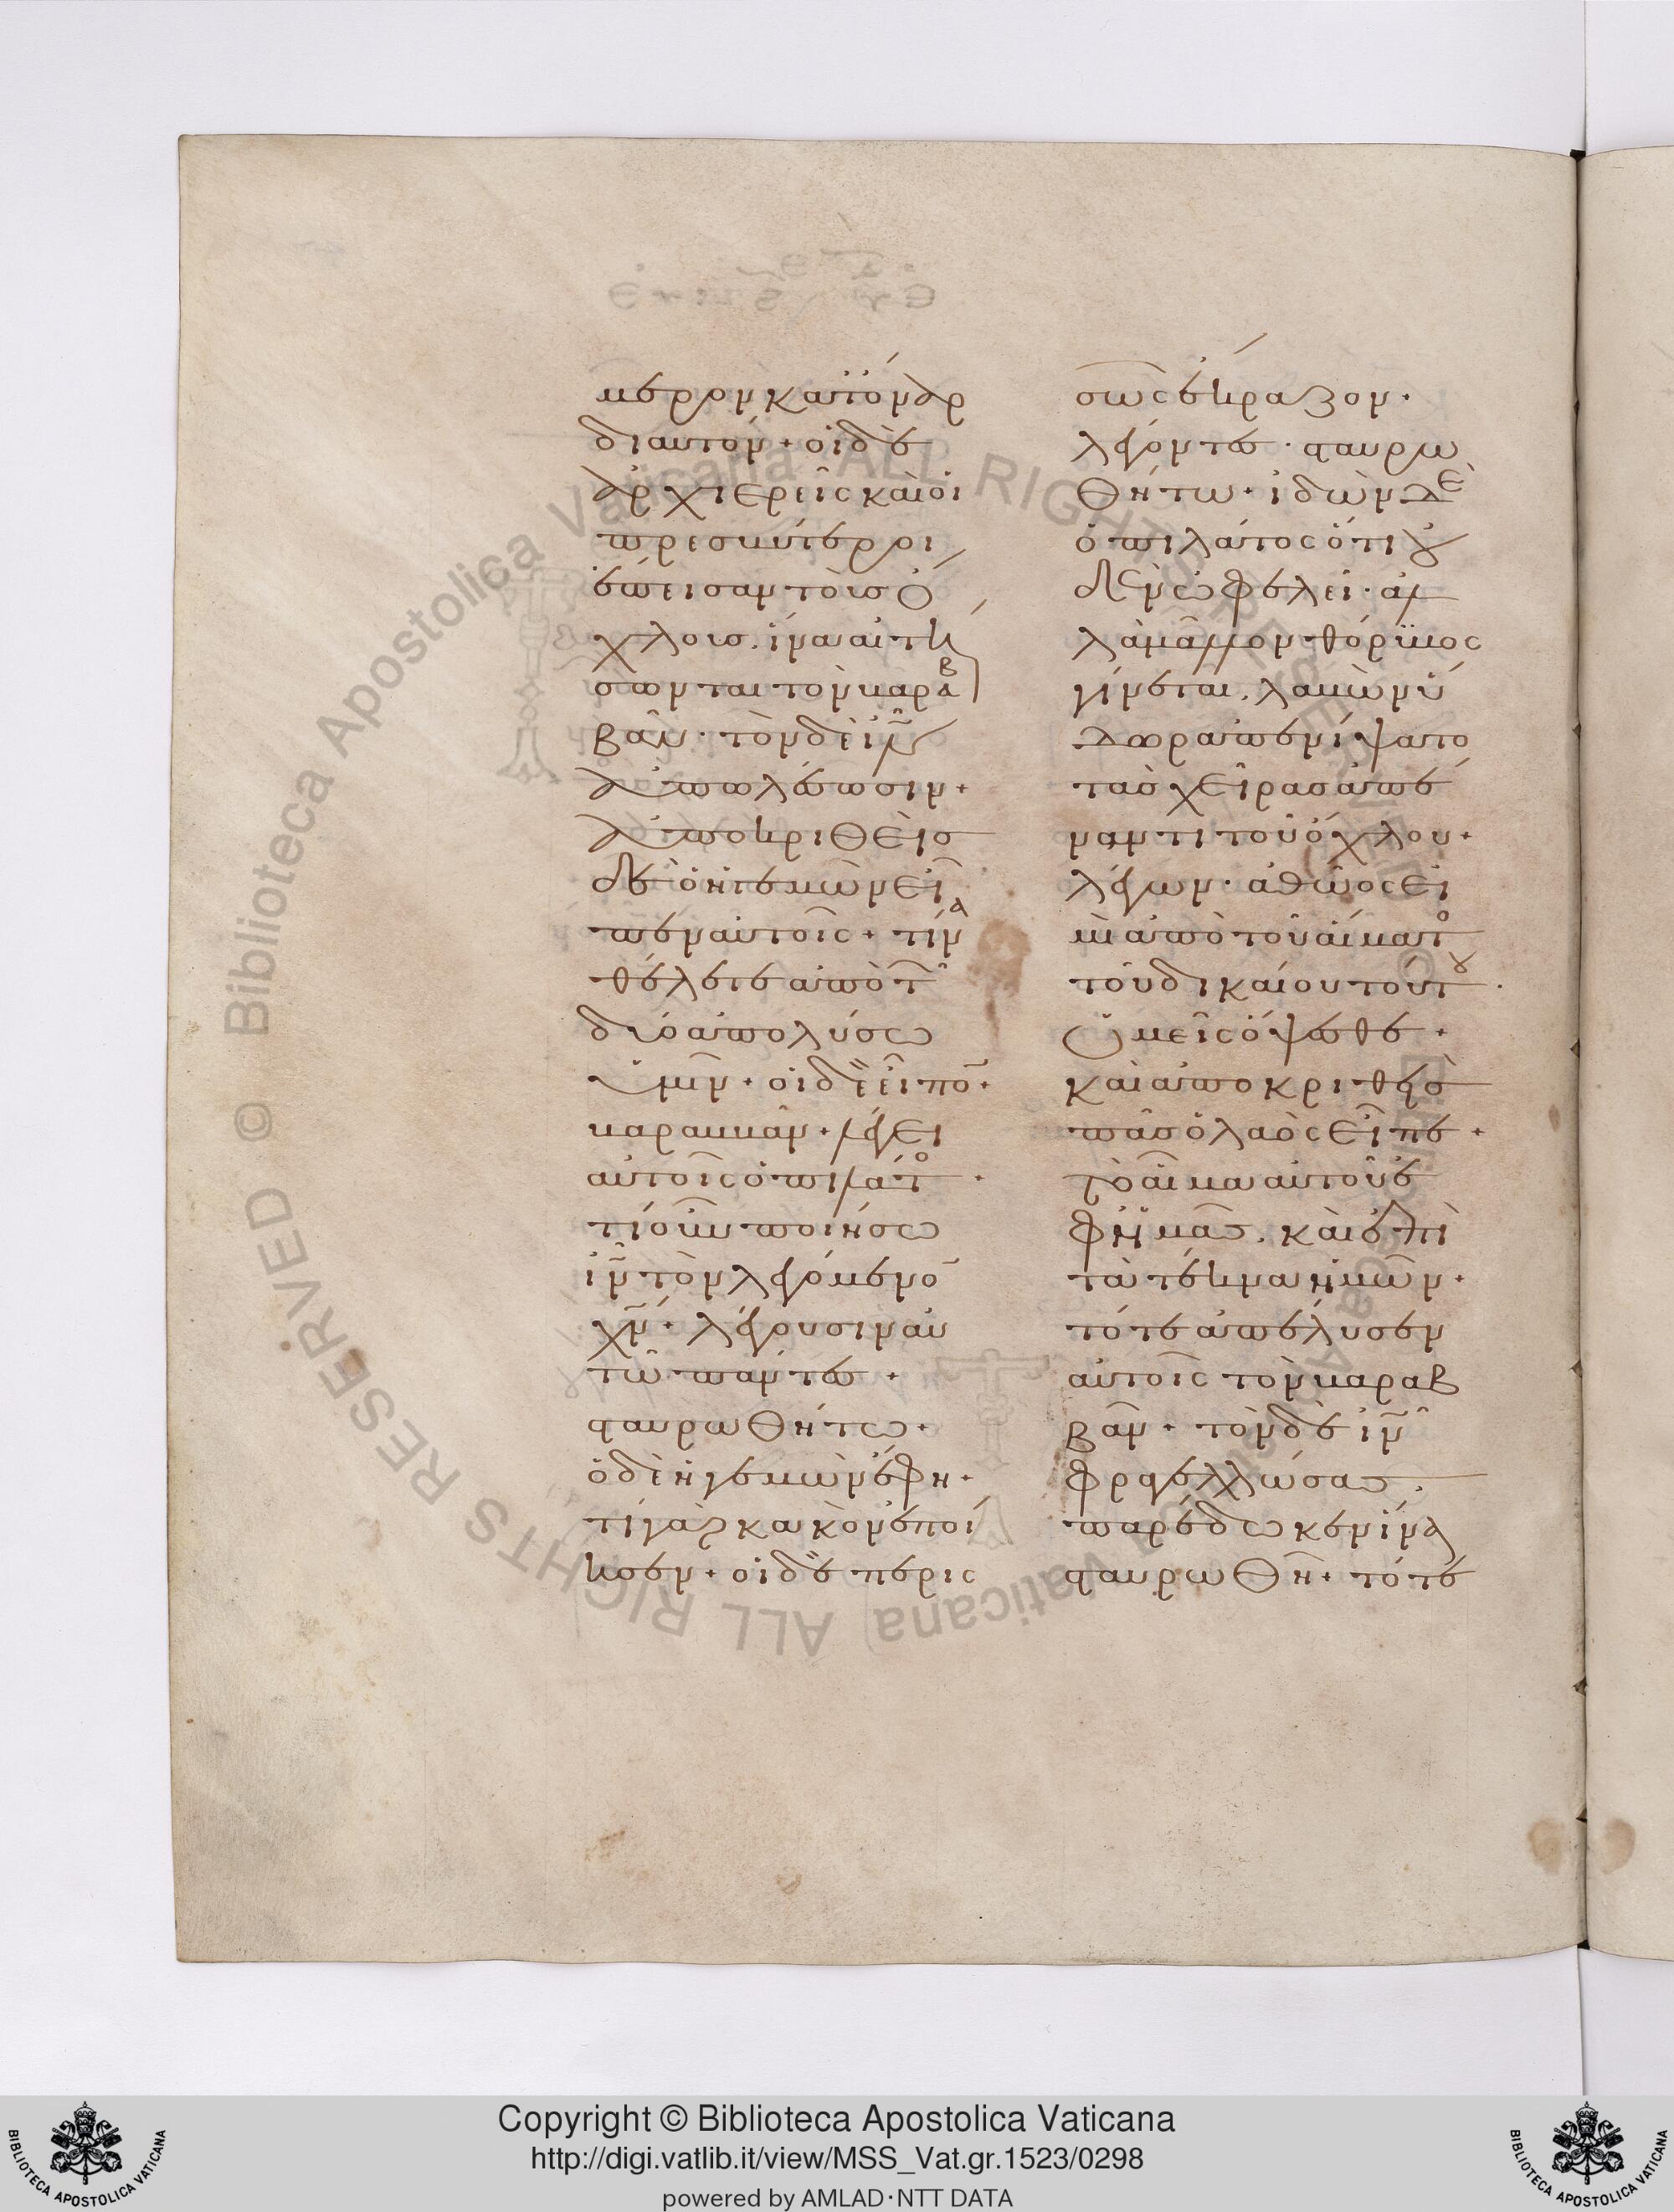 μερον κατόναρ
δι αυτόν + οἱ δὲ
ἀρχιερεῖς καὶ οἱ
πρεσβύτεροι
ἔπεισαν τοὺς ὄ
χλους. ἵνα αἰτή
σωνται τὸν βαραβ
βᾶν · τὸν δὲ ἰν̄
ἀπολέσωσιν +
ἀποκριθεὶς
δὲ ὁ ἡγεμὼν εἶ
πεν αὐτοῖς + τίνα
θέλετε ἀπὸ τῶ
δύο ἀπολύσω
ὑμῖν + οἱ δὲ εἶπο̄ +
βαραββᾶν + λέγει
αὐτοῖς ὁ πιλάτο ·
τί οὖν ποιήσω
ἰν̄ τὸν λεγόμενο̄
χν̄ + λέγουσιν αὐ
τῶ πάντες +
σταυρωθήτω +
ὁ δὲ ἡγεμὼν ἔφη +
τί γὰρ κακὸν ἐποί
ησεν + οἱ δὲ περισ
σῶς ἔκραζον ·
λέγοντες · σταυρω
θήτω + ἰδὼν δὲ
ὁ πιλάτος ὅτι οὐ
δὲν ὠφελεῖ · ἀλ
λὰ μᾶλλον θόρυβος
γίνεται. λαβὼν ὕ
δωρ ἀπενίψατο
τὰς χεῖρας ἀπέ
ναντι τοῦ ὄχλου +
λέγων · ἀθῶός εἰ
μι ἀπὸ τοῦ αἵματο
τοῦ δικαίου τούτου ·
ὑμεῖς ὄψεσθε +
καὶ ἀποκριθεὶς
πᾶς ὁ λαὸς εἶπε +
τὸ αἷμα αὐτοῦ ἐ
φ ἡμᾶς. καὶ ἐπὶ
τὰ τέκνα ἡμῶν +
τότε ἀπέλυσεν
αὐτοῖς τὸν βαραβ
βᾶν + τὸν δὲ ἰν̄
φραγελλώσας.
παρέδωκεν ἵνα
σταυρωθῆ + τότε
Copyright © Biblioteca Apostolica Vaticana
http://digi.vatlib.it/view/MSS_Vat.gr.1523/0298
powered by AMLAD·NTT DATA